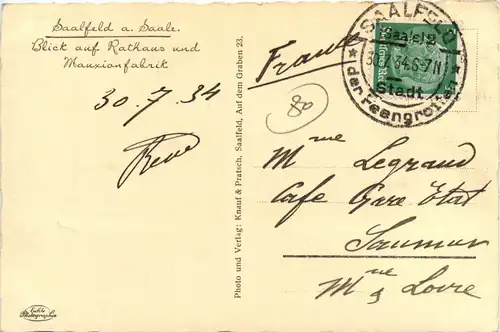 Saalfeld a. Saale.
Blick auf Rathaus und
Mauxionfabrik
30.7.34
Photo und Verlag: Knauf & Pratsch, Saalfeld, Auf dem Graben 23.
France
80
SAALFELD
30.7.34.6-7N
Stadt
der Feengrotten
Mme Legrand
Cafe Gare Etat
Saumur
Mne & Loire
Echte
Photographie